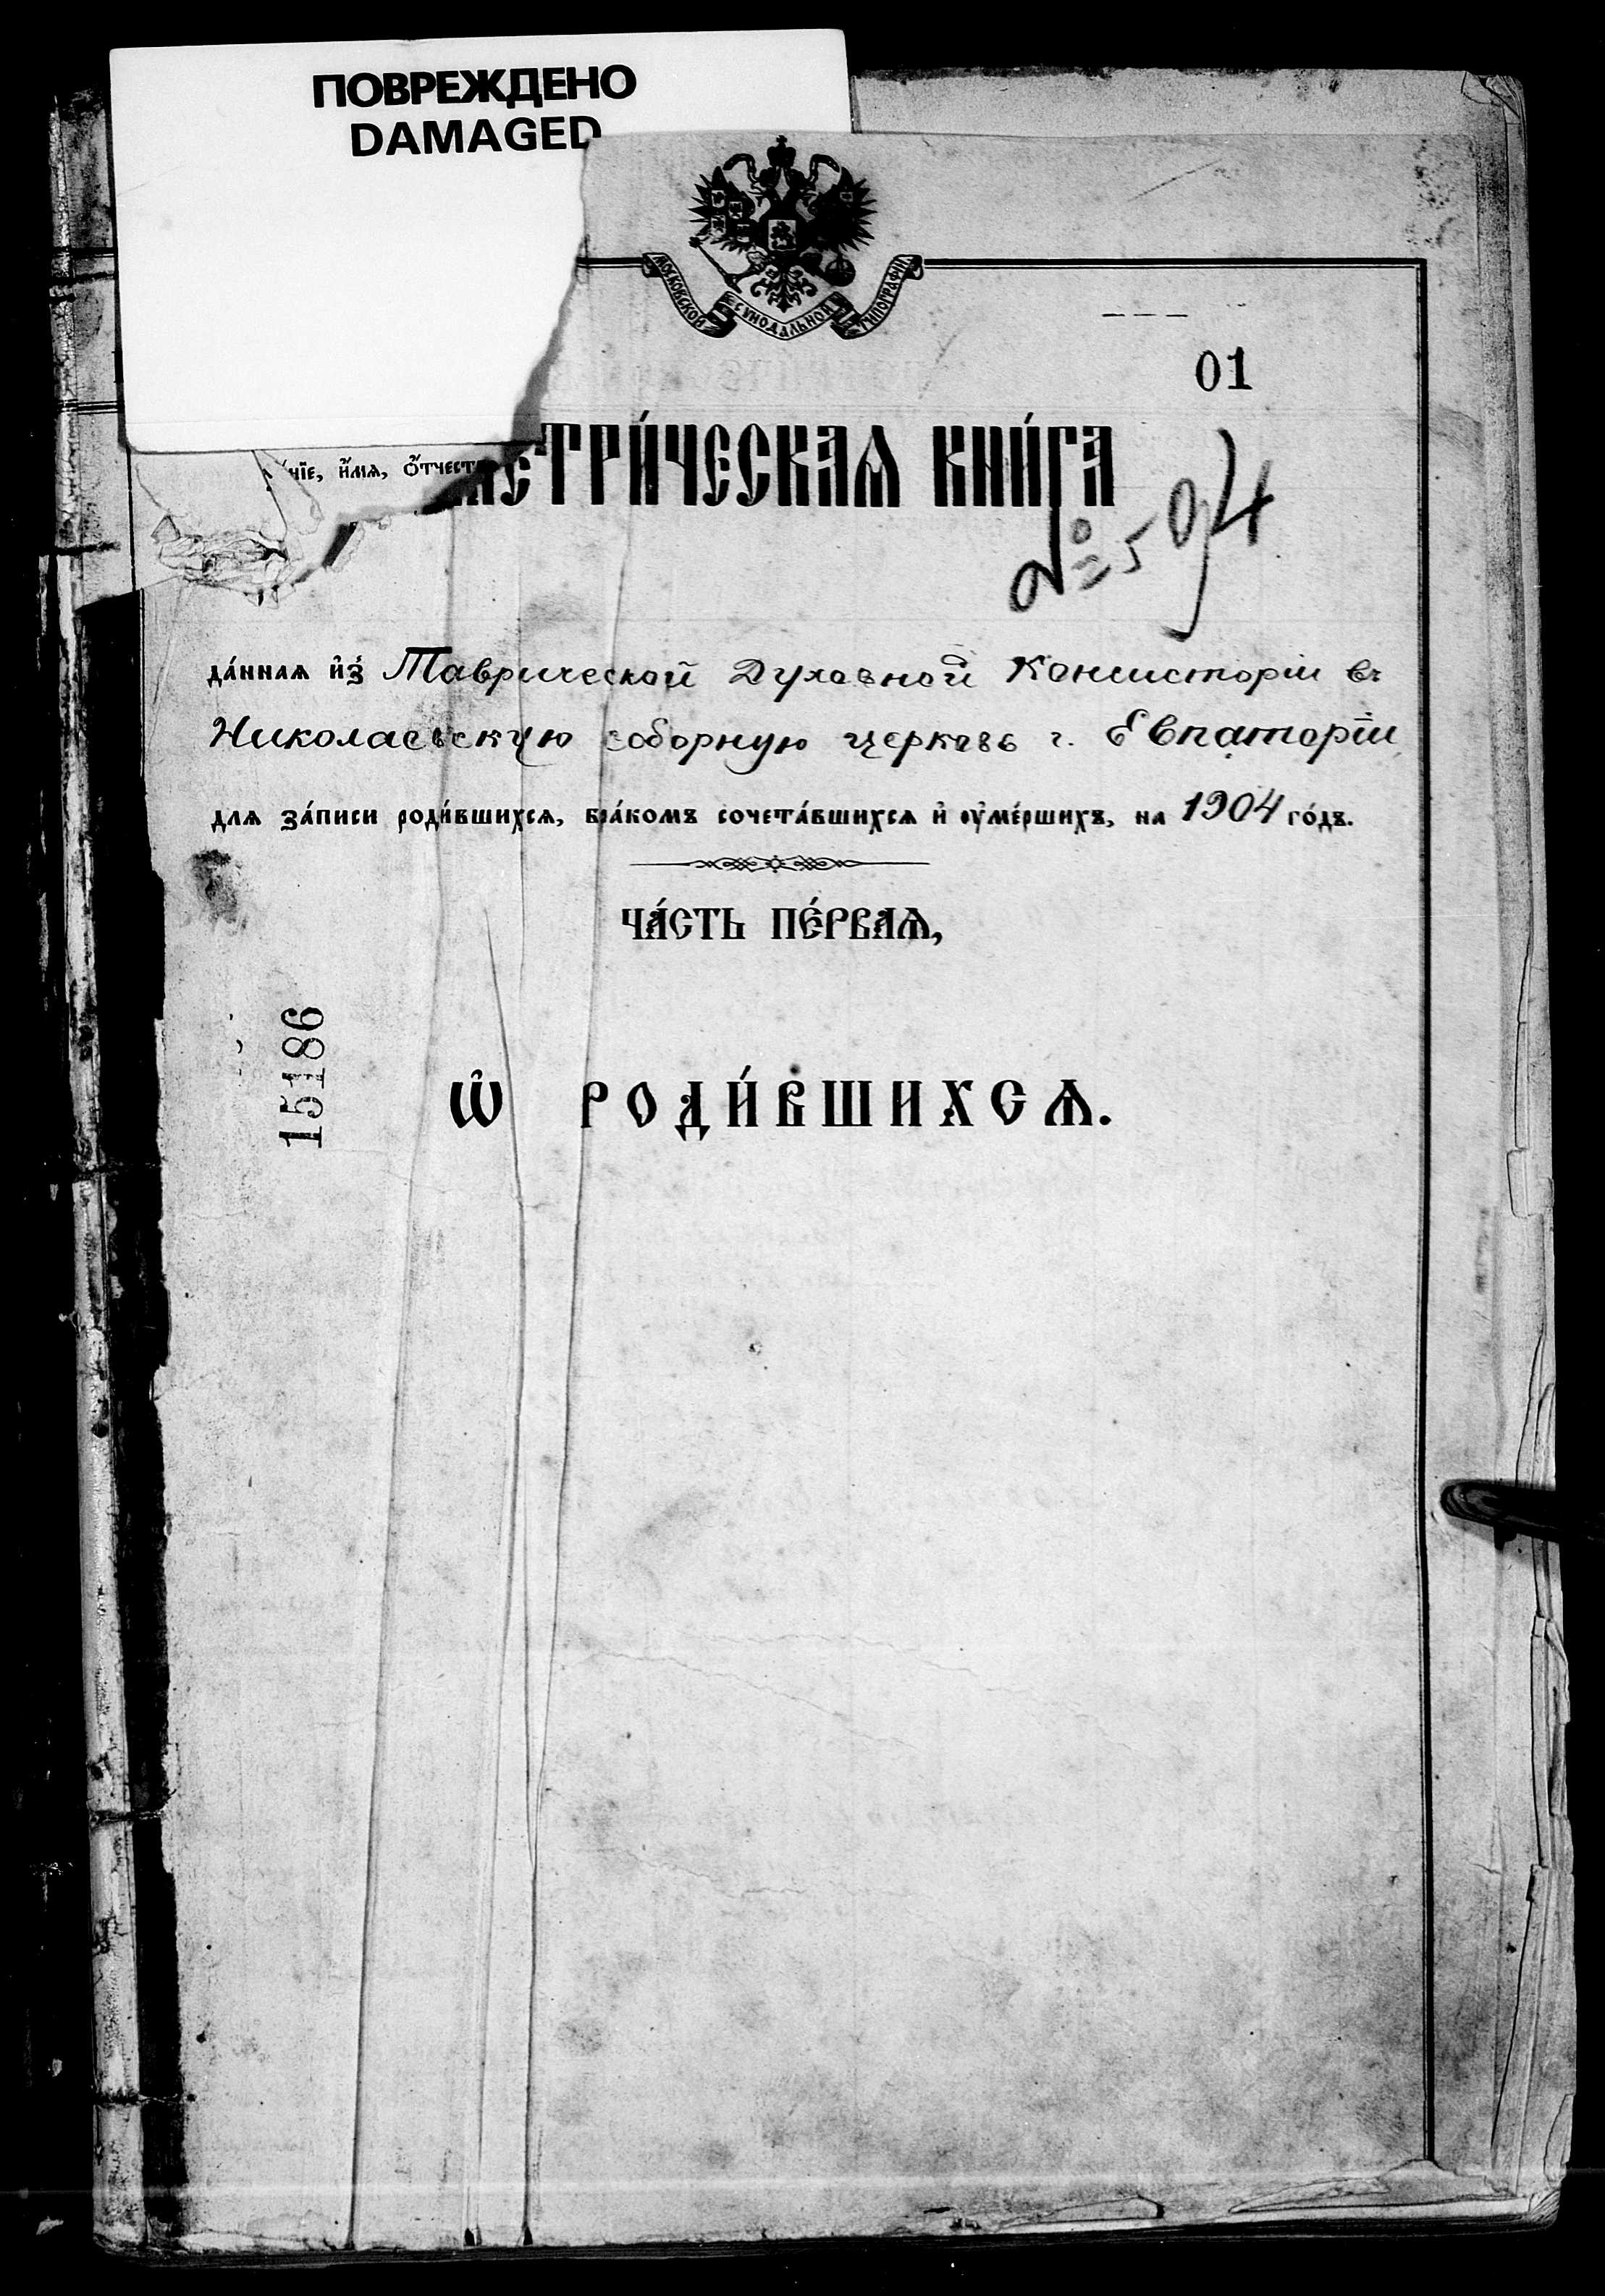 ПОВРЕЖДЕНО
DAMAGED
МОСКОВСКОЙ СѴНОДАЛЬНОЙ ТИПОГРАФІИ
01
ЕТРИ́ЧЕСКАѦ КНИ́ГА
нїе, и҆́мѧ, ѻ҆́тчест
№ 594
да́ннаѧ и҆з̾ Таврической Духовной Консисторіи въ
Николаевскую соборную церковь г. Евпаторіи
для за́писи роди́вшихсѧ, бра́комъ сочета́вшихсѧ и҆ ᲂу҆ме́ршихъ, на 1904 го́дъ.
ЧА́СТЬ ПЕ́РВАѦ,
15186
Ѡ҆ РОДИ́ВШИХСѦ.